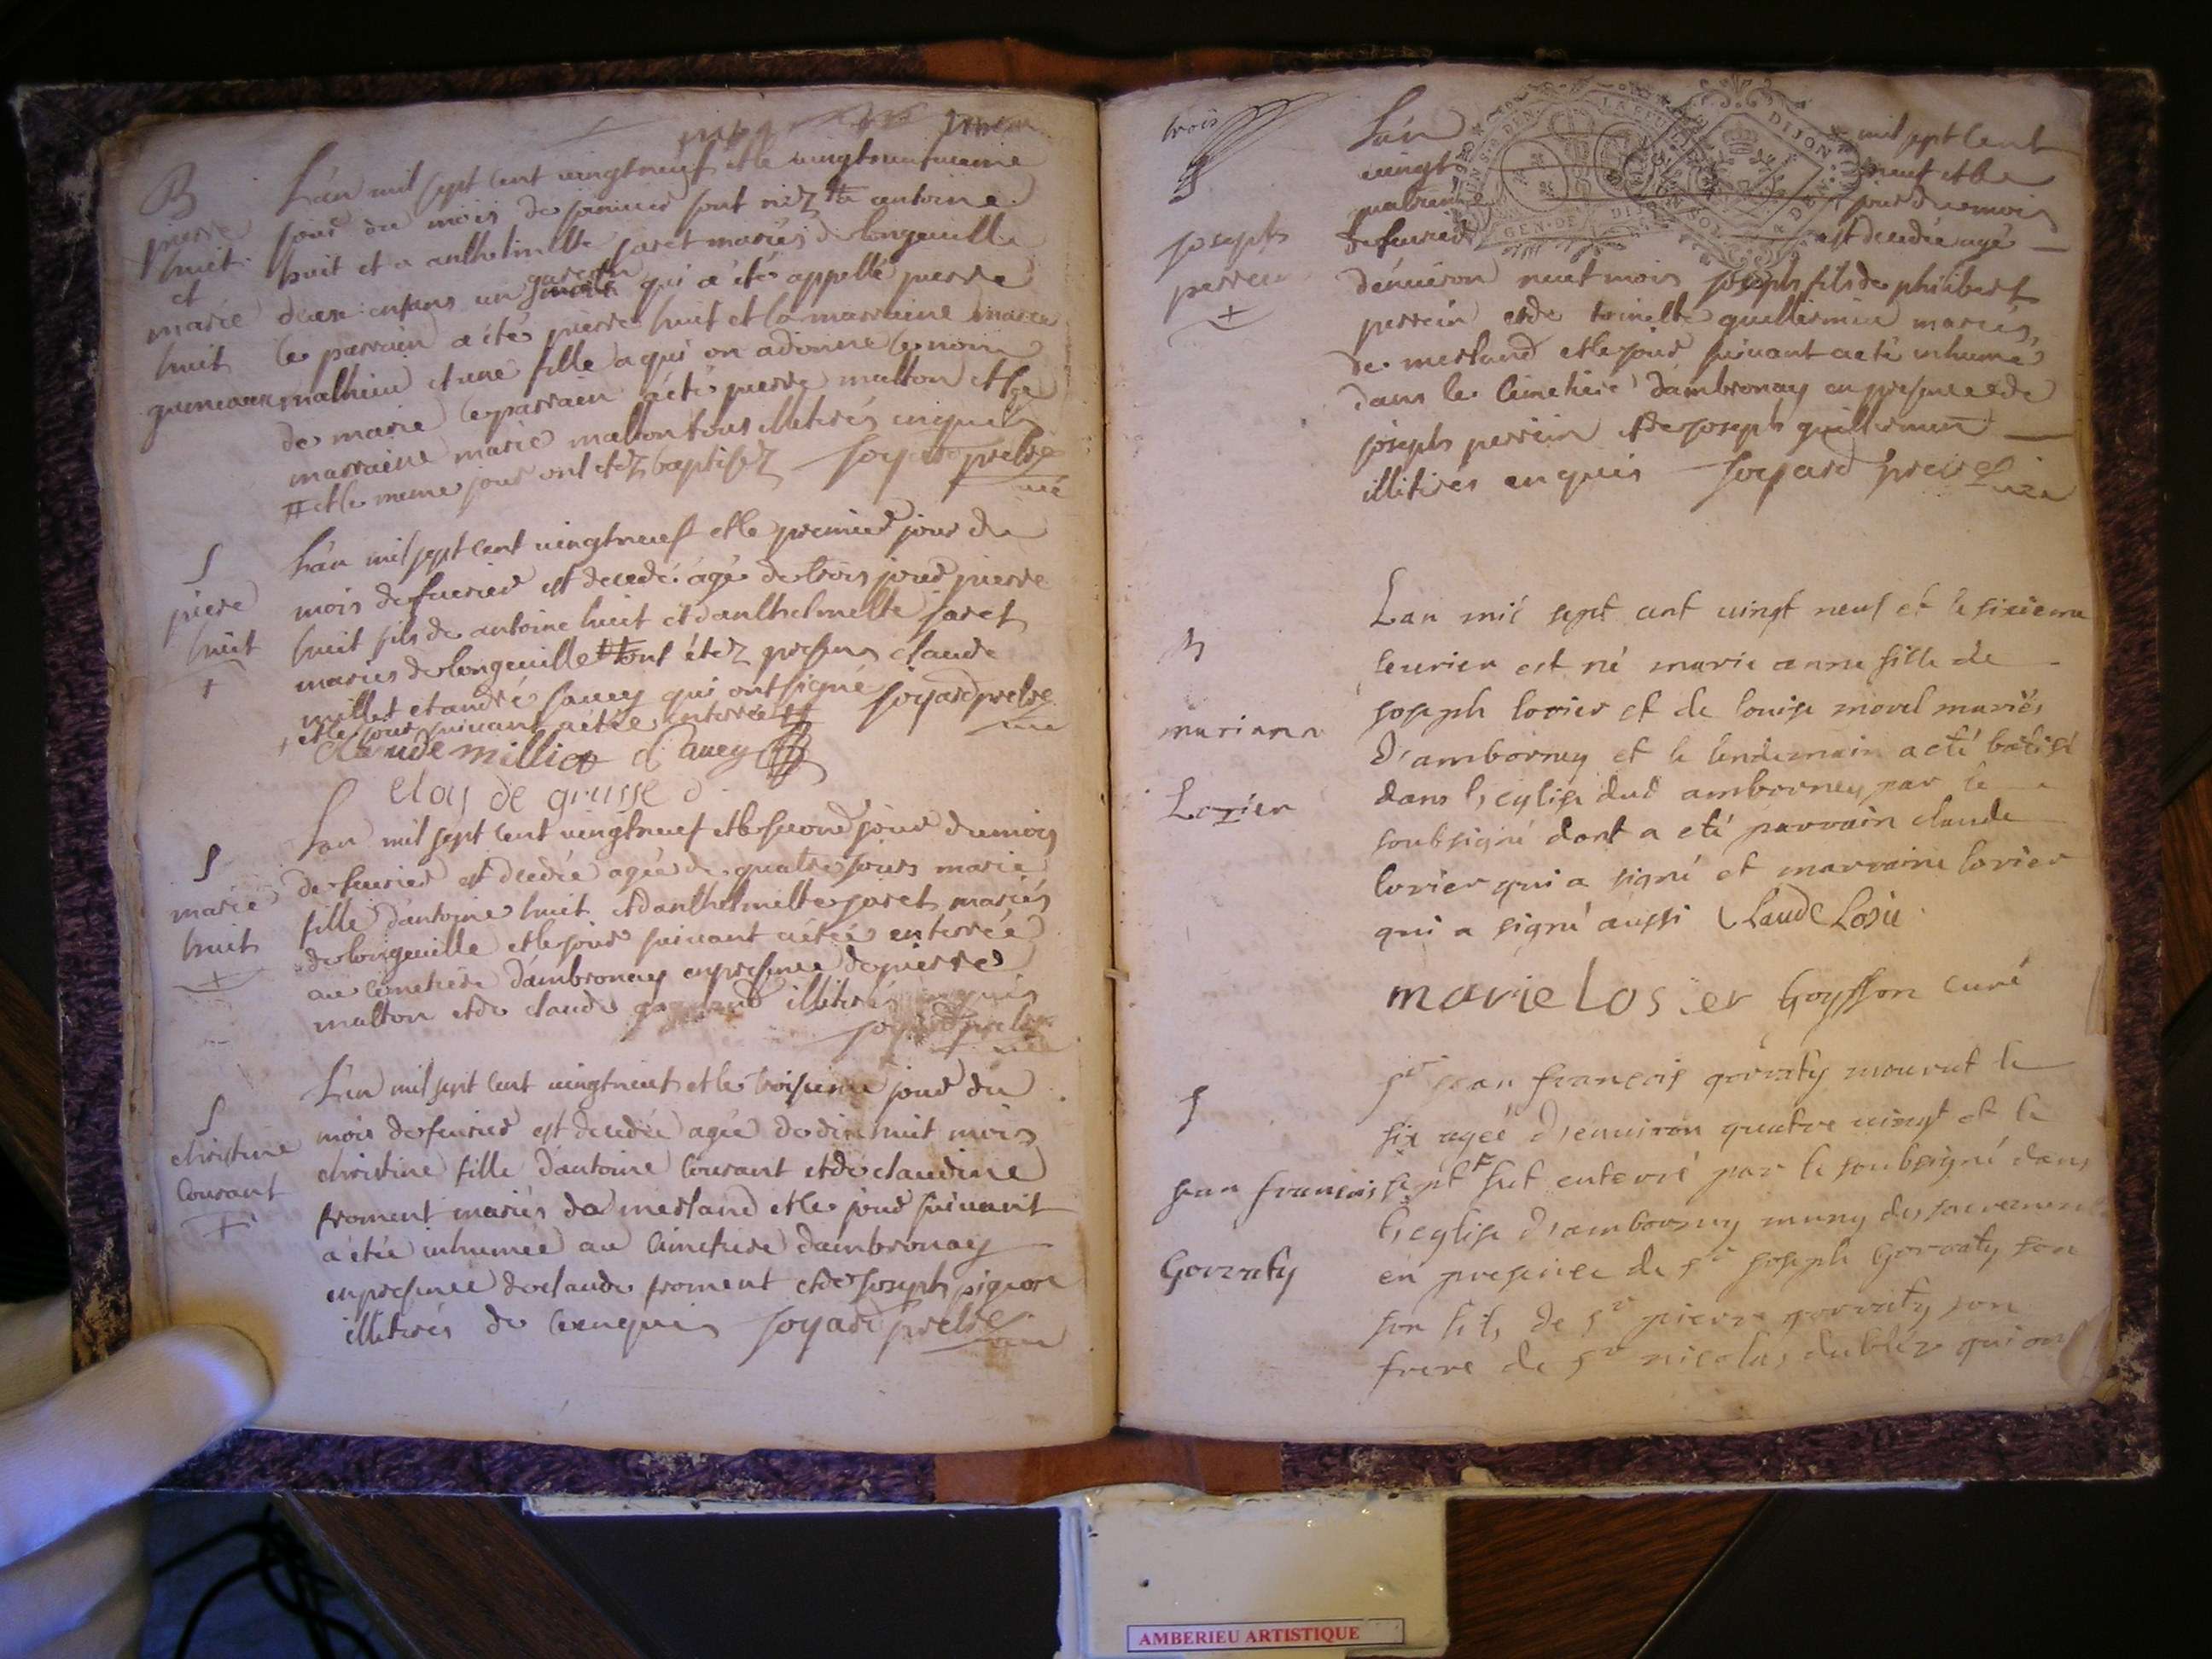 B
pierre
huit
et
marie
huit
gumeaux
L'an mil sept cent vingtneuf et le vingtneufuieme
jour du mois de januier sont néz # a antoine
huit et a anthelmette jaret mariés de longeuille
deux enfans un garcon qui a été appellé pierre
le parrain a été pierre huit et la marraine marie
mathieu et une fille a qui on a donné le nom
de marie le parrain a été pierre matton et la
marraine marie matton tous illitirés enquis
# et le meme jour ont etéz baptisez joyard pretre
S
piere
huit
+
L'an mil sept cent vingtneuf et le premier jour du
mois de feurier est decedé agé de trois jour pierre
huit fils de antoine huit et d'anthelmette jaret
mariés de longeuille # ont étéz presens claude
millet et andré saucy qui ont signé joyard pretre
et le jour suiuant a étée enterré #
claude milliot
eloy de grusse
S
marie
huit
+
L'an mil sept cent vingtneuf et le second jour du mois
de feurier est decedée agée de quatre jours marie
fille d'antoine huit et d'anthelmette jaret mariés
de longeuille et le jour suiuant a étée enterrée
au cimetiere d'ambronay en presence de pierre
matton et de claude illitirés enquis
joyard pretre
S
christine
Courant
+
L'an mil sept cent vingtneuf et le troisieme jour du
mois de feurier est decedée agée de dix huit mois
christine fille d'antoine Courant et de claudine
froment mariés de merland et le jour suiuant
a étée inhumée au cimetiere d'ambronay
en presence de claude froment et de joseph pignon
illitirés de ce enquis joyard pretre
trois
joseph
perrein
+
L'an mil sept cent
vingt neuf et le
quatrieme jour du mois
de feurier est decedé agé
d'enuiron neuf mois joseph fils de philibert
perrein et de toinette guillermin mariés
de merland et le jour suiuant a eté inhumé
dans le cimetiere d'ambronay en presence de
joseph perrein et de joseph guillermin
illitirés enquis joyard pretre
GEN. DE DIJON
mariana
Lozier
Lan mil sept cent vingt neuf et le sixieme
feurier est né marie anne fille de
joseph lorier et de louise morel mariés
d'amborney et le lendemain a eté batisé
dans leglise dud amborney par le
soubsigné dont a eté parrain claude
lorier qui a signé et marraine lorier
qui a signé aussi Claude Losie
marie Losier Goyffon curé
S
jean françois
Gorraty
sr jean françois gorraty mourut le
six ageé d'enuiron quatre vingt et le
sept fut enterré par le soubsigné dans
leglise d'amborney muny des sacremen
en presence de sr joseph Gorraty son
son fils de sr pierre gorraty son
frere de sr nicolas dublez qui on
AMBERIEU ARTISTIQUE